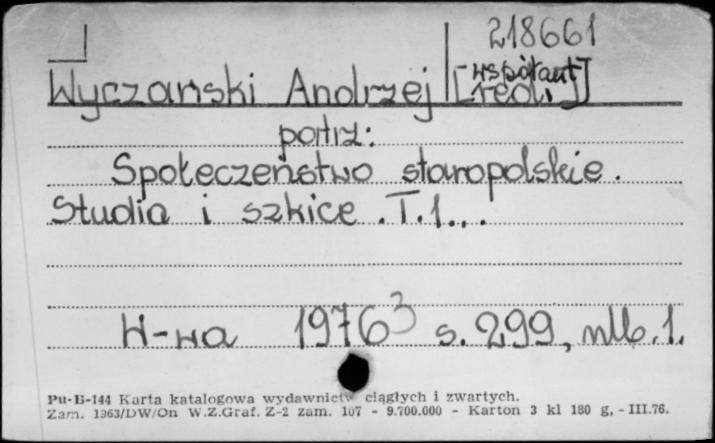 218661
Wyczański Andrzej [współaut. red.]
patrz:
Społeczeństwo staropolskie.
Studia i szkice. T.1...
W-wa 1976 3 s. 299, nlb. 1.
Pu-B-144 Karta katalogowa wydawnictw ciągłych i zwartych.
Zam. 1363/DW/On W.Z.Graf. Z-2 zam. 107 - 9.700.000 - Karton 3 kl 180 g, - III.76.